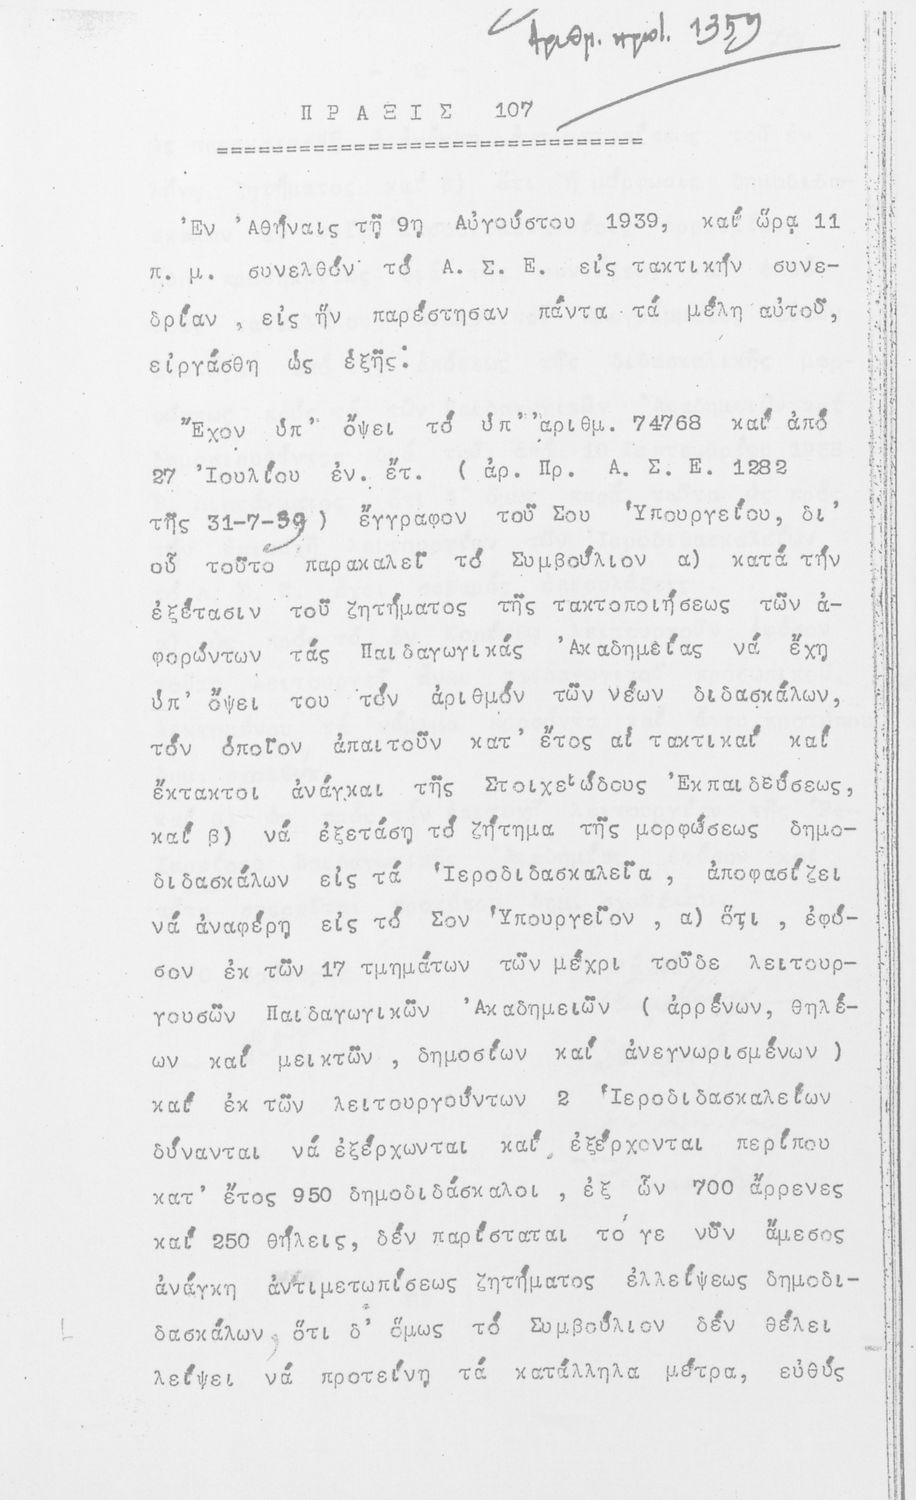 Αριθμ. πρωτ. 1359
Π Ρ Α Ξ Ι Σ 107
================================
Ἐν Ἀθήναις τῇ 9ῃ Αὐγούστου 1939, καί ὥρᾳ 11
π. μ. συνελθόν τό Α. Σ. Ε. εἰς τακτικήν συνε-
δρίαν , εἰς ἥν παρέστησαν πάντα τά μέλη αὐτοῦ,
εἰργάσθη ὡς ἑξῆς:
Ἔχον ὑπ' ὄψει τό ὑπ' ἀριθμ. 74768 καί ἀπό
27 Ἰουλίου ἐν. ἔτ. ( ἀρ. Πρ. Α. Σ. Ε. 1282
τῆς 31-7-39 ) ἔγγραφον τοῦ Σου Ὑπουργείου, δι'
οὗ τοῦτο παρακαλεῖ τό Συμβούλιον α) κατά τήν
ἐξέτασιν τοῦ ζητήματος τῆς τακτοποιήσεως τῶν ἀ-
φορώντων τάς Παιδαγωγικάς Ἀκαδημείας νά ἔχῃ
ὑπ' ὄψει του τόν ἀριθμόν τῶν νέων διδασκάλων,
τόν ὁποῖον ἀπαιτοῦν κατ' ἔτος αἱ τακτικαί καί
ἔκτακτοι ἀνάγκαι τῆς Στοιχειώδους Ἐκπαιδεύσεως,
καί β) νά ἐξετάσῃ τό ζήτημα τῆς μορφώσεως δημο-
διδασκάλων εἰς τά Ἱεροδιδασκαλεῖα , ἀποφασίζει
νά ἀναφέρῃ εἰς τό Σον Ὑπουργεῖον , α) ὅτι , ἐφό-
σον ἐκ τῶν 17 τμημάτων τῶν μέχρι τοῦδε λειτουρ-
γουσῶν Παιδαγωγικῶν Ἀκαδημειῶν ( ἀρρένων, θηλέ-
ων καί μεικτῶν , δημοσίων καί ἀνεγνωρισμένων )
καί ἐκ τῶν λειτουργούντων 2 Ἱεροδιδασκαλείων
δύνανται νά ἐξέρχωνται καί ἐξέρχονται περίπου
κατ' ἔτος 950 δημοδιδάσκαλοι , ἐξ ὧν 700 ἄρρενες
καί 250 θήλεις, δέν παρίσταται τό γε νῦν ἄμεσος
ἀνάγκη ἀντιμετωπίσεως ζητήματος ἐλλείψεως δημοδι-
δασκάλων, ὅτι δ' ὅμως τό Συμβούλιον δέν θέλει
λείψει νά προτείνῃ τά κατάλληλα μέτρα, εὐθύς